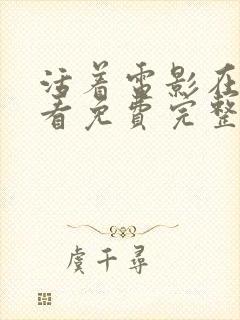 活着雷影在
看免费完整
虞千寻